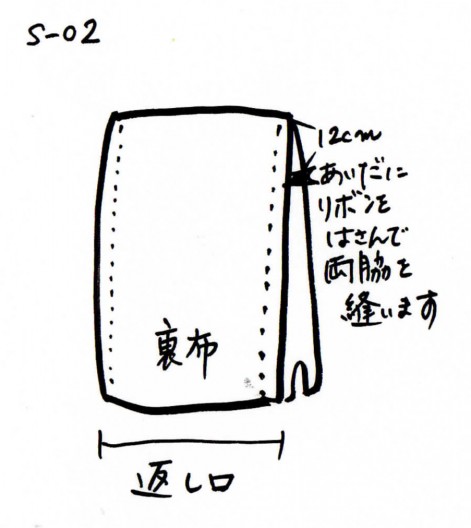 S-02
12cm
あいだに
リボンを
はさんで
両脇を
縫います
裏布
返し口